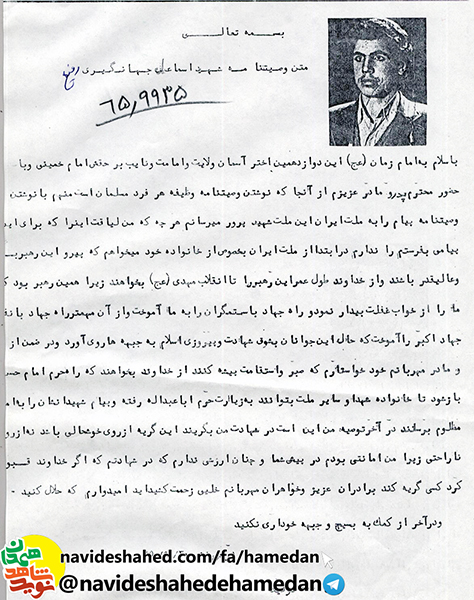 بسمه تعالی
متن وصیتنامه شهید اسماعیل جهانگیری
۶۵٫۹۹۳۵
باسلام به امام زمان (عج) این دوازدهمین اختر آسمان ولایت وامامت ونایب برحقش امام خمینی وبا
حضور محترم پدرو مادر عزیزم از آنجا که نوشتن وصیتنامه وظیفه هر فرد مسلمان است منهم با نوشتن
وصیتنامه پیام را به ملت ایران این ملت شهید پرور میرسانم هر چه که من لیاقت اینرا که برای این
پیامی بفرستم را ندارم درابتدا از ملت ایران بخصوص از خانواده خود میخواهم که پیرو این رهبر
وعالیقدر باشند واز خداوند طول عمر این رهبررا تا انقلاب مهدی (عج) بخواهند زیرا همین رهبر بود که
ما را از خواب غفلت بیدار نمودو راه جهاد باستمگران را به ما آموخت واز آن مهمتر راه جهاد با
جهاد اکبر را آموخت که حال این جوانان بشوق شهادت وپیروزی اسلام به جبهه هاروی آورد ودر ضمن از
و مادر مهربانم خود خواستارم که صبر واستقامت پیشه کنند از خداوند بخواهند که راه حرم امام
باز شود تا خانواده شهدا و سایر ملت بتوانند به زیارت حرم اباعبداله رفته و پیام شهیدانشان را به
مظلوم برسانند در آخر توصیه من این است در شهادت من بگریند این گریه ازروی خوشحالی باشد نه ازرو
ناراحتی زیرا من امانتی بودم در پیش شما و چنان ارزشی ندارم که در شهادتم که اگر خداوند
کرد کسی گریه کند برادران عزیز وخواهران مهربانم خیلی زحمت کشیداید امیدوارم که حلال کنید -
ودرآخر از کمک به بسیج و جبهه خوداری نکنید
navideshahed.com/fa/hamedan
@navideshahedehamedan
نوید شاهد همدان